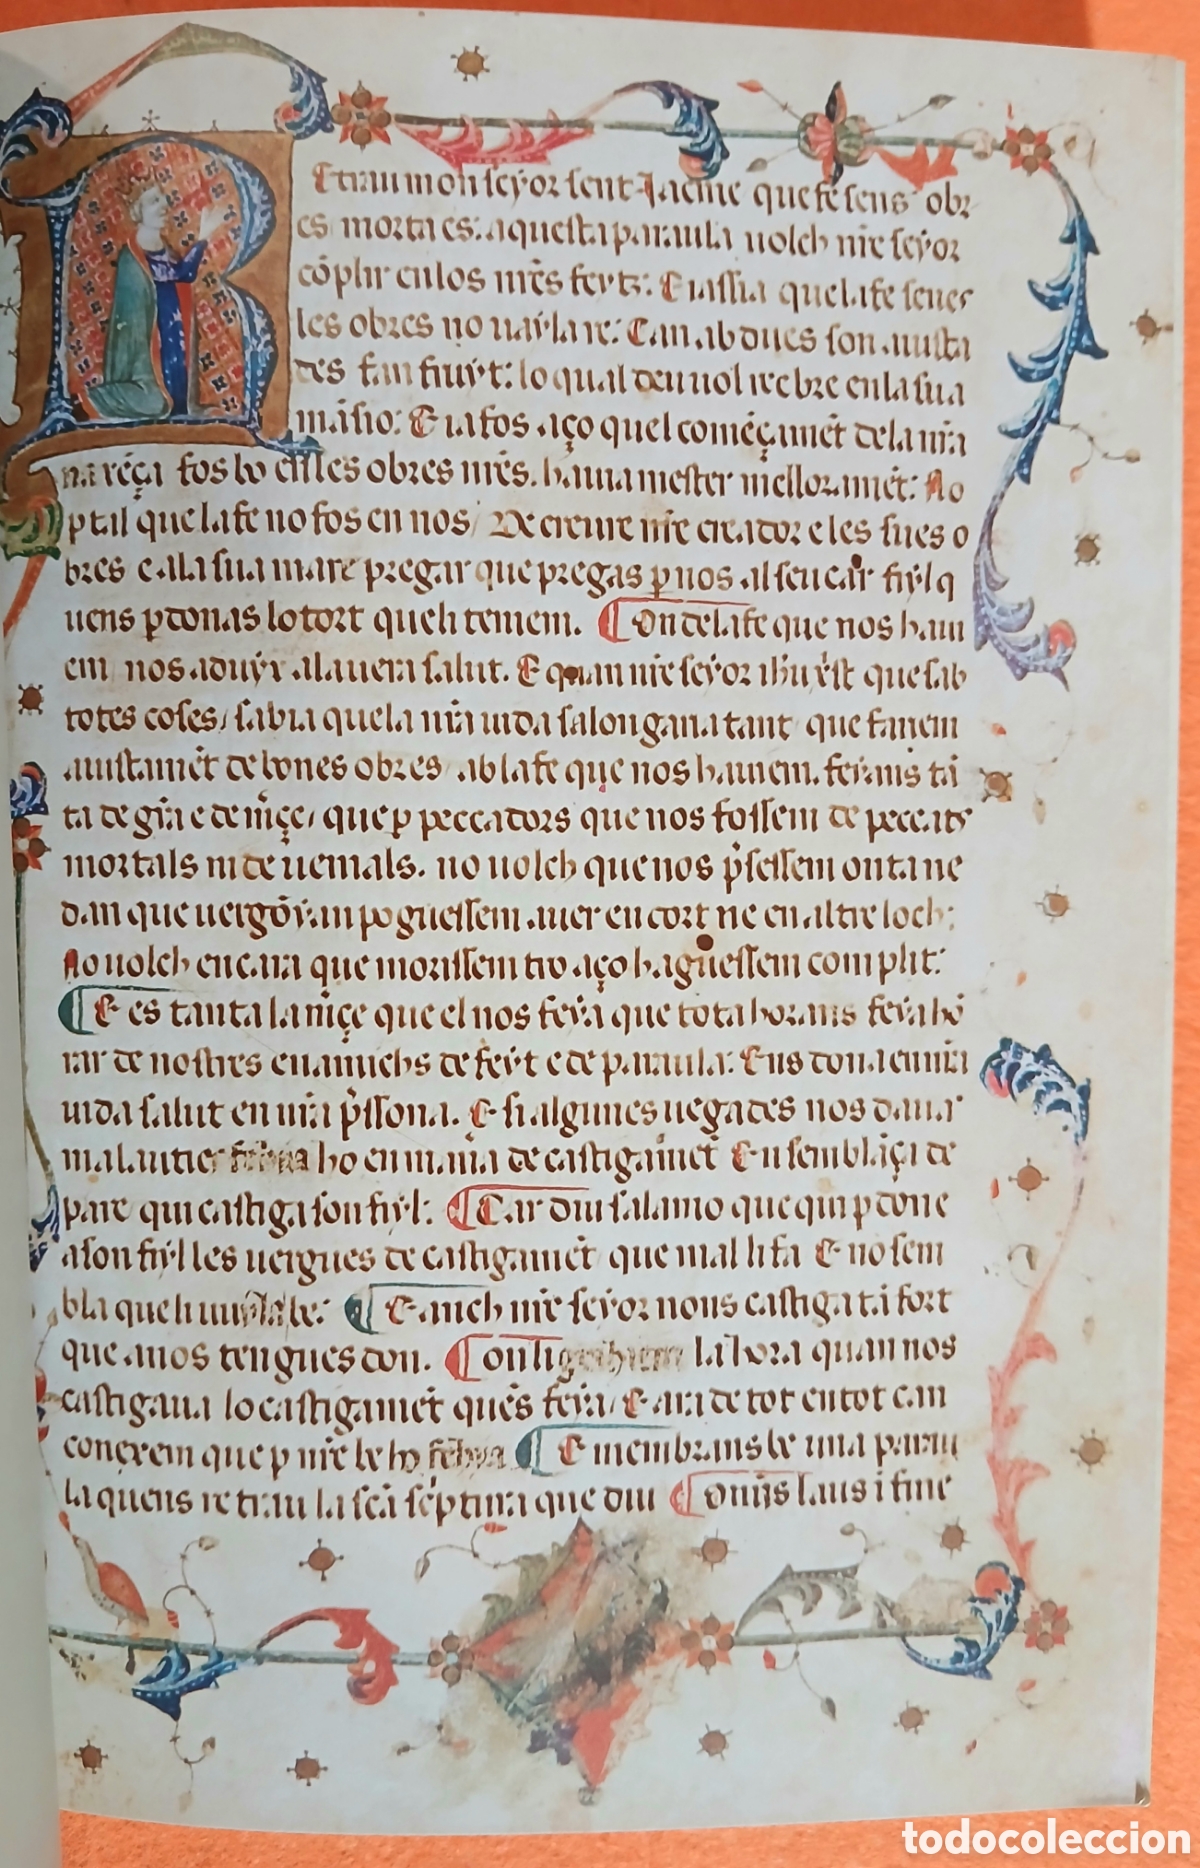 R Etrau mon seyor sent Jacme que fe sens obr
es morta es: aquesta paraula volch nr̄e seyor
cōplir en los nr̄es feytz: E ia ssia que la fe senes
les obres no vayla re: Can abdues son aiusta
des fan fruyt: lo qual deu uol reebre en la sua
māsio: E ia fos aço quel comēçamēt de la nr̄a
naxēça fos bo en les obres nr̄es. hauia mester melloramēt: No
p tal que la fe no fos en nos / De creure nr̄e creador e les sues o
bres e a la sua mare pregar que pregas p nos al seu car fiyl q
uens pdonas lo tort queli teniem. On de la fe que nos hauí
em nos aduyx a la uera salut. E quan nr̄e seyor ihū xp̄st que sab
totes coses / sabia que la nr̄a uida salongaua tant que fariem
aiustamēt de bones obres ab la fe que nos hauiem. feyans tā
ta de grā e de mc̄e / que p peccadors que nos fossem de peccats
mortals ni de uenials. no uolch que nos p̄sessem onta ne
dan que uergōyan poguessem auer en cort ne en altre loch:
No uolch encara que morissem tro aço haguessem complit:
E es tanta la mc̄e que el nos feya que tota horans feya hō
rar de nostres enamichs de feyt e de paraula: Ens dona en nr̄a
uida salut en nr̄a p̄ssona. E si algunes uegades nos daua
malauties ho en mania de castigamēt En semblāça de
pare qui castiga son fiyl: Car diu salamo que qui pdone
a son fiyl les uergues de castigamēt que mal li fa E no sem
bla que li uuyla be: E anch nr̄e seyor nons castiga tā fort
que a nos tengues don. On la hora quan nos
castigaua lo castigamēt quēs feya / E ara de tot en tot can
conexem que p nr̄e be ho E membrans be una parau
la quens retrau la scā sc̄ptura que diu Om̄is laus ī fine
todocoleccion